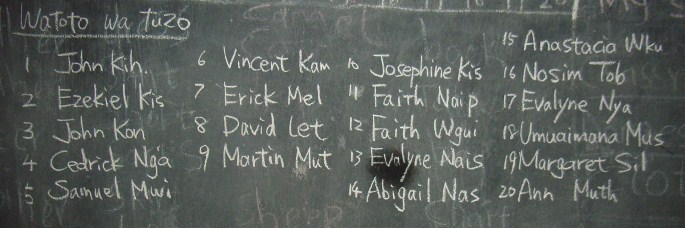 Watoto wa Tuzo
1 John Kih.
2 Ezekiel Kis
3 John Kon
4 Cedrick Nga
5 Samuel Mwi
6 Vincent Kam
7 Erick Mel
8 David Let
9 Martin Mut
10 Josephine Kis
11 Faith Naip
12 Faith Wgui
13 Evalyne Nais
14 Abigail Nas
15 Anastacia Wku
16 Nosim Tob
17 Evalyne Nya
18 Umuaimana Mus
19 Margaret Sil
20 Ann Muth